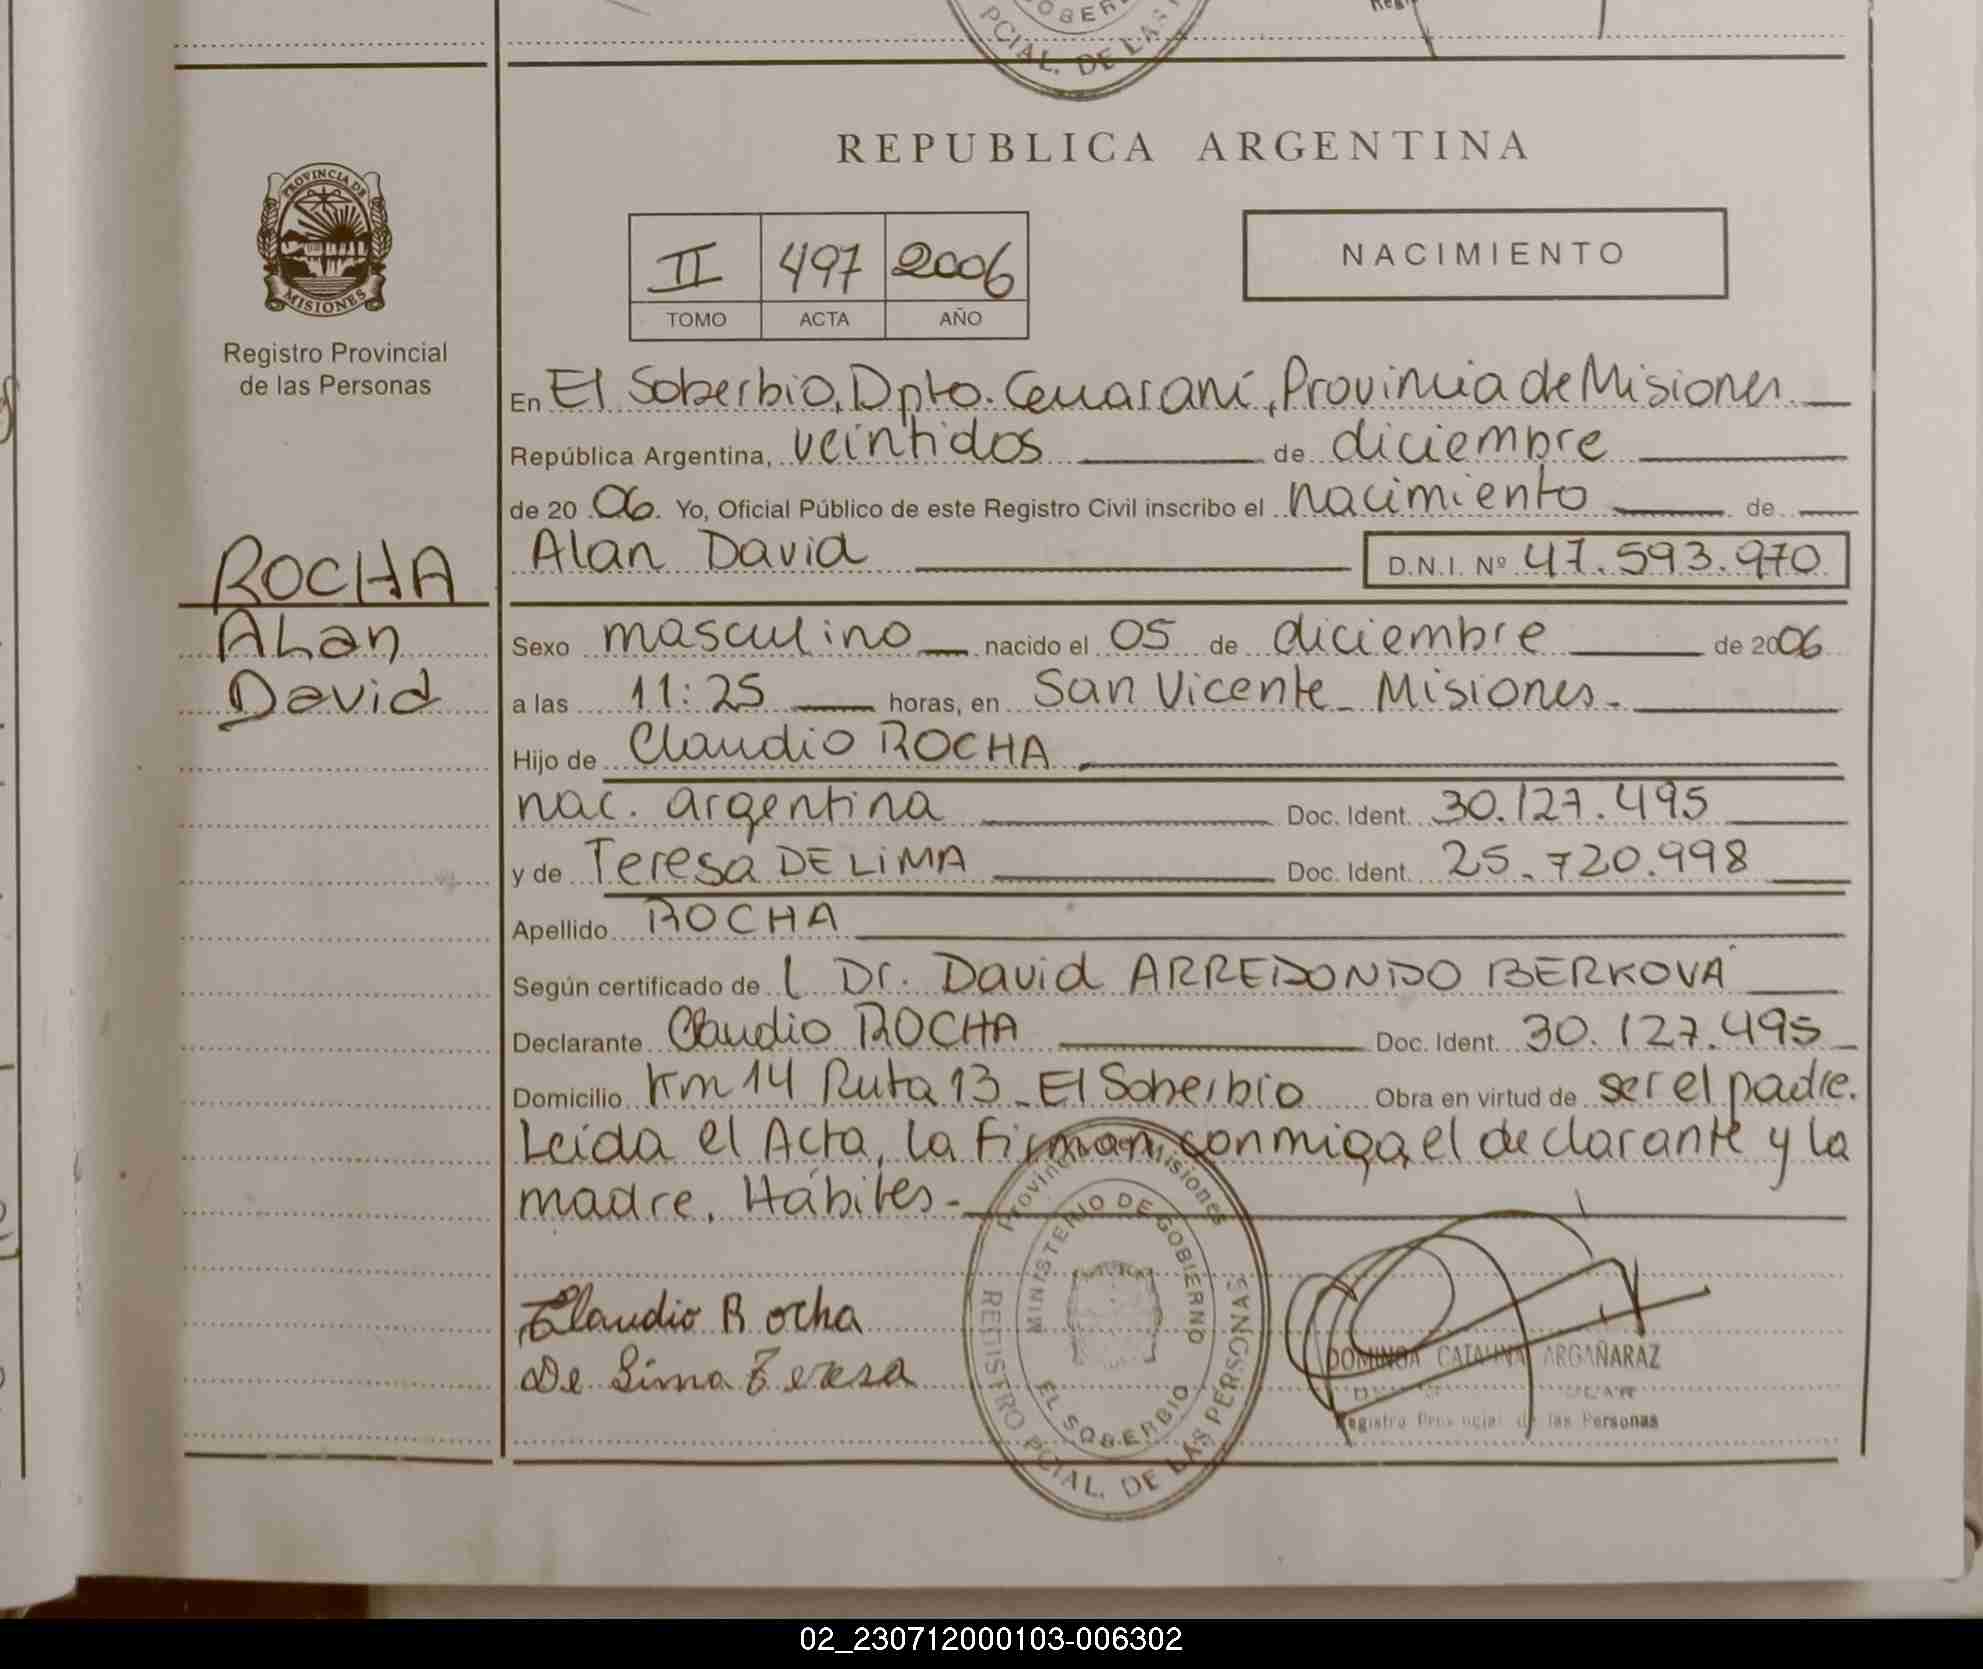 OBER
PCIAL. DE LAS
REPUBLICA ARGENTINA
PROVINCIA DE
MISIONES
Registro Provincial
de las Personas
II 497 2006
TOMO ACTA AÑO
NACIMIENTO
En El Soberbio, Dpto. Guaraní, Provincia de Misiones.
República Argentina, veintidos de diciembre
de 20 06. Yo, Oficial Público de este Registro Civil inscribo el nacimiento de
ROCHA
Alan
David
Alan David D.N.I. Nº 47.593.970
Sexo masculino nacido el 05 de diciembre de 2006
a las 11:25 horas, en San Vicente - Misiones.
Hijo de Claudio ROCHA
nac. argentina Doc. Ident. 30.127.495
y de Teresa DE LIMA Doc. Ident. 25.720.998
Apellido ROCHA
Según certificado de l Dr. David ARREDONDO BERKOVA
Declarante Claudio ROCHA Doc. Ident. 30.127.495
Domicilio Km 14 Ruta 13 - El Soberbio Obra en virtud de ser el padre.
Leída el Acta, la firman conmigo, el declarante y la
madre. Hábiles -
Claudio Rocha
De Lima Teresa
Provincia Misiones
MINISTERIO DE GOBIERNO
EL SOBERBIO
REGISTRO PCIAL. DE LAS PERSONAS
DOMINGA CATALINA ARGAÑARAZ
Registro Provincial de las Personas
02_230712000103-006302